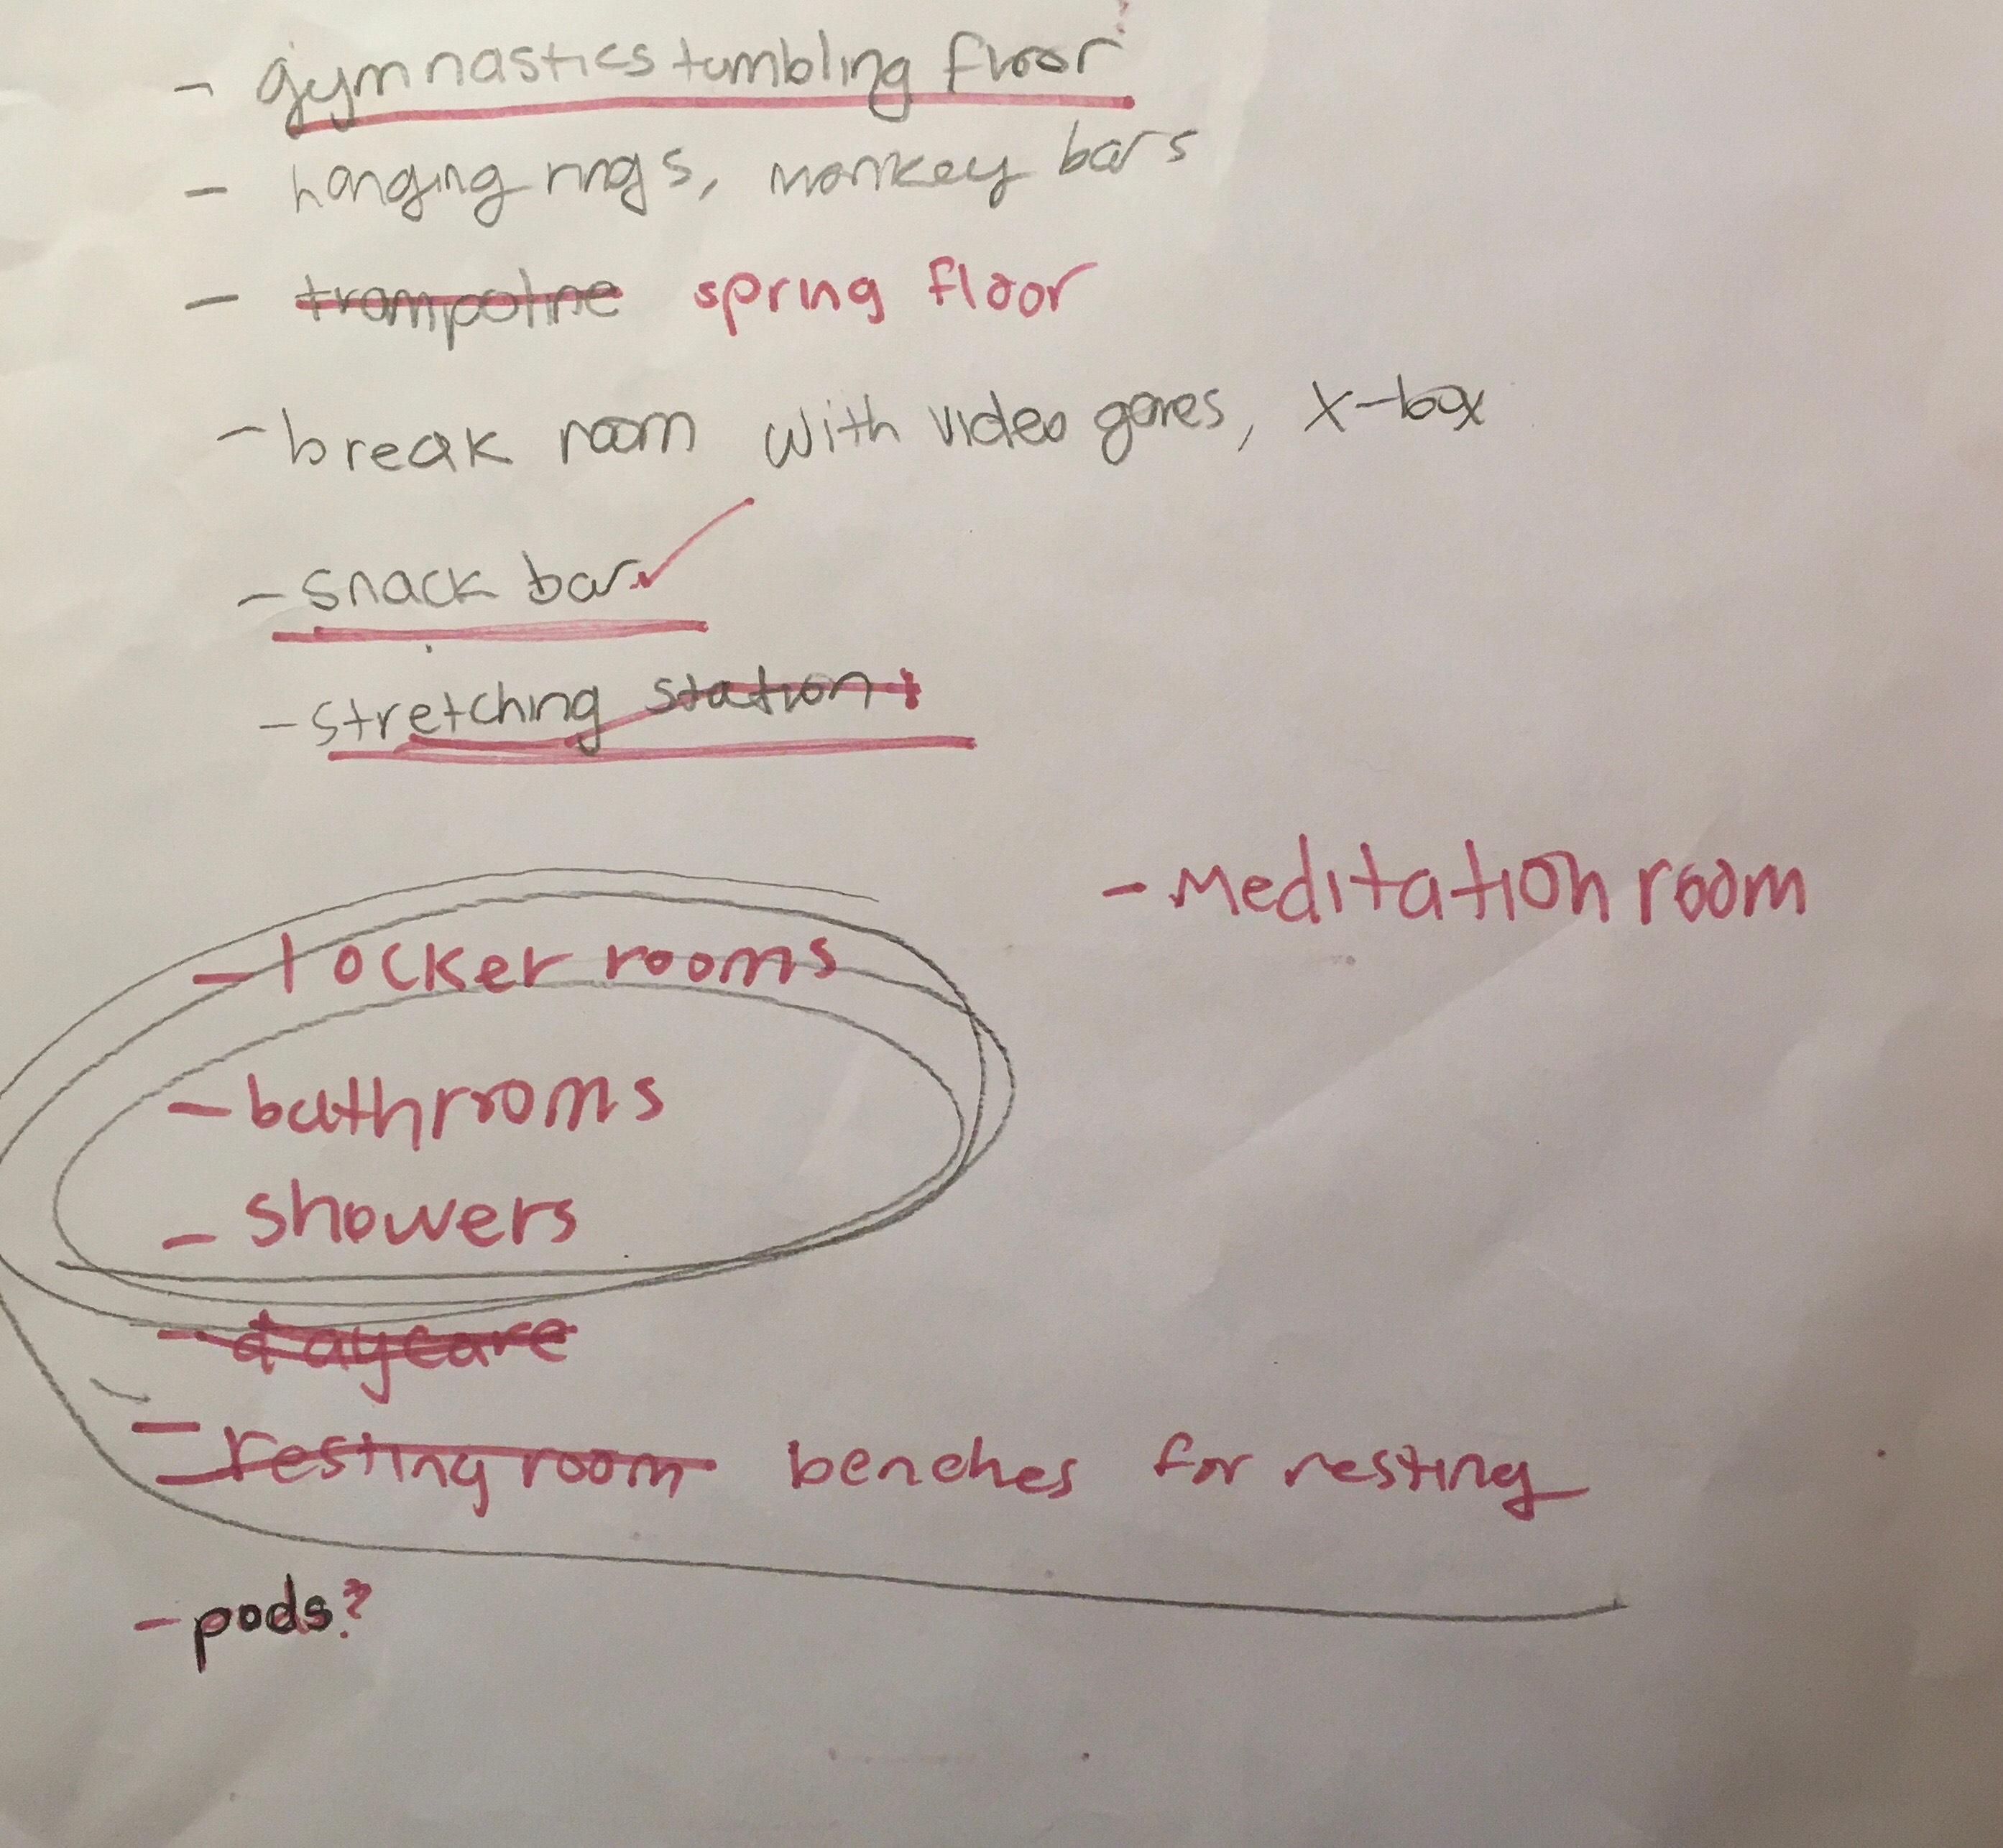 - gymnastics tumbling floor
- hanging rings, monkey bars
- trampoline spring floor
- break room with video games, X-box
- snack bar ✓
- stretching station
- Meditation room
- locker rooms
- bathrooms
- showers
- daycare
- resting room benches for resting
- pods?